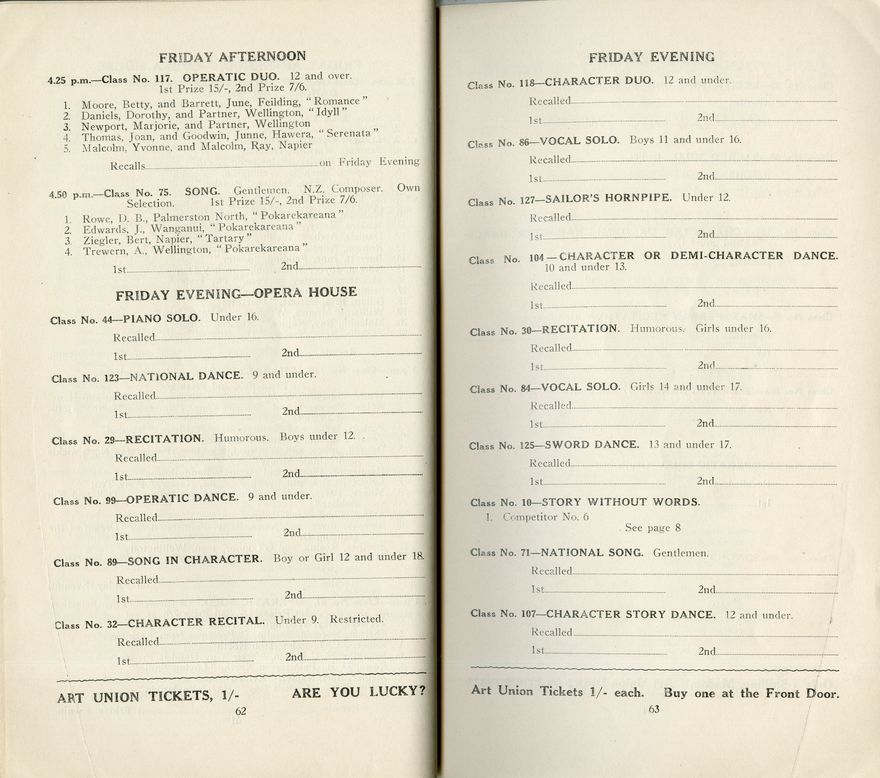 FRIDAY AFTERNOON
4.25 p.m.—Class No. 117. OPERATIC DUO. 12 and over.
1st Prize 15/-, 2nd Prize 7/6.
1. Moore, Betty, and Barrett, June, Feilding, "Romance"
2. Daniels, Dorothy, and Partner, Wellington, "Idyll"
3. Newport, Marjorie, and Partner, Wellington
4. Thomas, Joan, and Goodwin, Junne, Hawera, "Serenata"
5. Malcolm, Yvonne, and Malcolm, Ray, Napier
Recalls on Friday Evening
4.50 p.m.—Class No. 75. SONG. Gentlemen. N.Z. Composer. Own
Selection. 1st Prize 15/-, 2nd Prize 7/6.
1. Rowe, D. B., Palmerston North, "Pokarekareana"
2. Edwards, J., Wanganui, "Pokarekareana"
3. Ziegler, Bert, Napier, "Tartary"
4. Trewern, A., Wellington, "Pokarekareana"
1st 2nd
FRIDAY EVENING—OPERA HOUSE
Class No. 44—PIANO SOLO. Under 16.
Recalled
1st 2nd
Class No. 123—NATIONAL DANCE. 9 and under.
Recalled
1st 2nd
Class No. 29—RECITATION. Humorous. Boys under 12.
Recalled
1st 2nd
Class No. 99—OPERATIC DANCE. 9 and under.
Recalled
1st 2nd
Class No. 89—SONG IN CHARACTER. Boy or Girl 12 and under 18.
Recalled
1st 2nd
Class No. 32—CHARACTER RECITAL. Under 9. Restricted.
Recalled
1st 2nd
ART UNION TICKETS, 1/- ARE YOU LUCKY?
62
FRIDAY EVENING
Class No. 118—CHARACTER DUO. 12 and under.
Recalled
1st 2nd
Class No. 86—VOCAL SOLO. Boys 11 and under 16.
Recalled
1st 2nd
Class No. 127—SAILOR'S HORNPIPE. Under 12.
Recalled
1st 2nd
Class No. 104—CHARACTER OR DEMI-CHARACTER DANCE.
10 and under 13.
Recalled
1st 2nd
Class No. 30—RECITATION. Humorous. Girls under 16.
Recalled
1st 2nd
Class No. 84—VOCAL SOLO. Girls 14 and under 17.
Recalled
1st 2nd
Class No. 125—SWORD DANCE. 13 and under 17.
Recalled
1st 2nd
Class No. 10—STORY WITHOUT WORDS.
1. Competitor No. 6
See page 8
Class No. 71—NATIONAL SONG. Gentlemen.
Recalled
1st 2nd
Class No. 107—CHARACTER STORY DANCE. 12 and under.
Recalled
1st 2nd
Art Union Tickets 1/- each. Buy one at the Front Door.
63